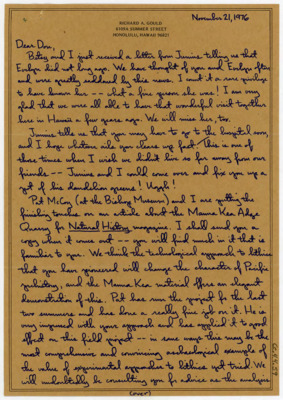 November 21, 1976
RICHARD A. GOULD
HONOLULU, HAWAII 96821
Dear Don,
Betsy and I just received a letter from Junius telling us that
Evelyn died not long ago. We have thought of you and Evelyn often
and were greatly saddened by this news. I count it a rare privilege
to have known her -- what a fine person she was! I am very
glad that we were all able to have that wonderful visit together
here in Hawaii a few years ago. We will miss her, too.
Junius tells us that you may have to go to the hospital soon,
and I hope whatever ails you clears up fast. This is one of
those times when I wish we didn't live so far away from our
friends -- Junius and I could come over and fix you up a
pot of his dandelion greens! Ugh!
Pat McCoy (at the Bishop Museum) and I are putting the
finishing touches on an article about the Mauna Kea Adze
Quarry for Natural History magazine. I shall send you a
copy when it comes out -- you will find much in it that is
familiar to you. We think the technological approach to lithics
that you have pioneered will change the character of Pacific
prehistory, and the Mauna Kea material offers an elegant
demonstration of this. Pat has run the project for the last
two summers and has done a really fine job on it. He is
very impressed with your approach and has applied it to good
effect on this field project -- in some ways this may be the
most comprehensive and convincing archaeological example of
the value of experimental approaches to lithics yet tried. We
will undoubtedly be consulting you for advice as the analysis
(over)